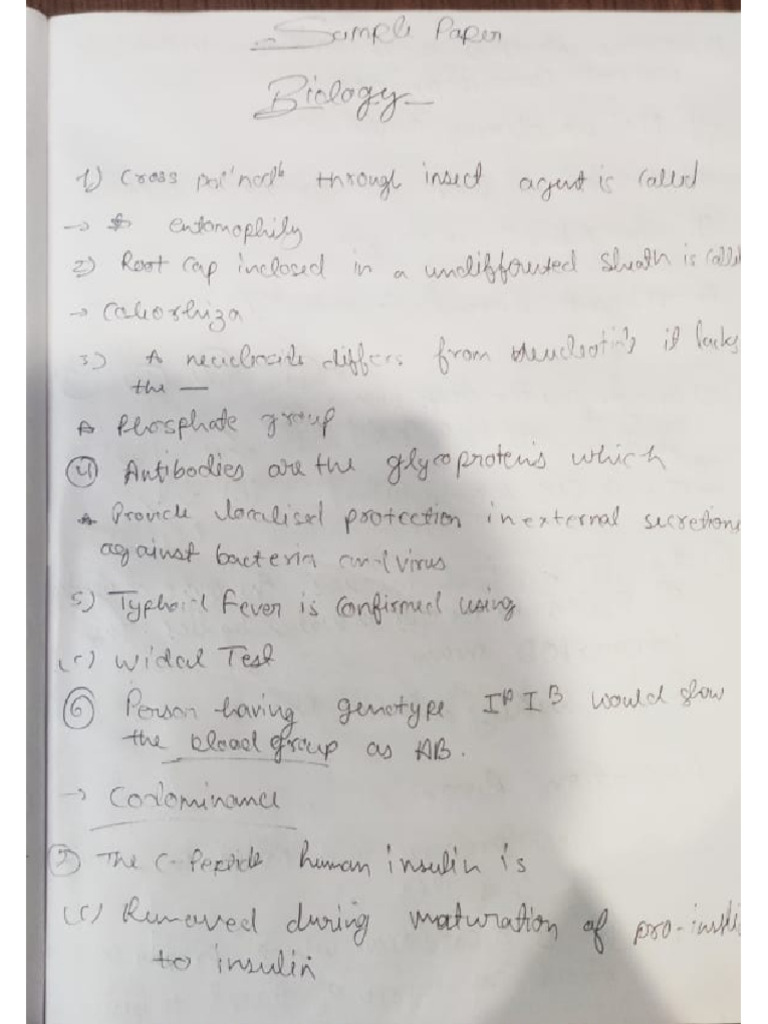 Sample Paper
Biology
1) Cross pol'nat^n through insect agent is called
→ entomophily
2) Root cap inclosed in a undifferented sheath is
→ Coleorhiza
3) A differs from it lacks
the —
A Phosphate group
(4) Antibodies are the glycoproteins which
Provide localised protection in external secretions
against bacteria and virus
5) Typhoid Fever is confirmed using
(c) Widal Test
(6) Person having genotype I^A I^B would show
the blood group as AB.
→ Codominance
(7) The C-Peptide human insulin is
(c) Removed during maturation of pro-insuli
to insulin